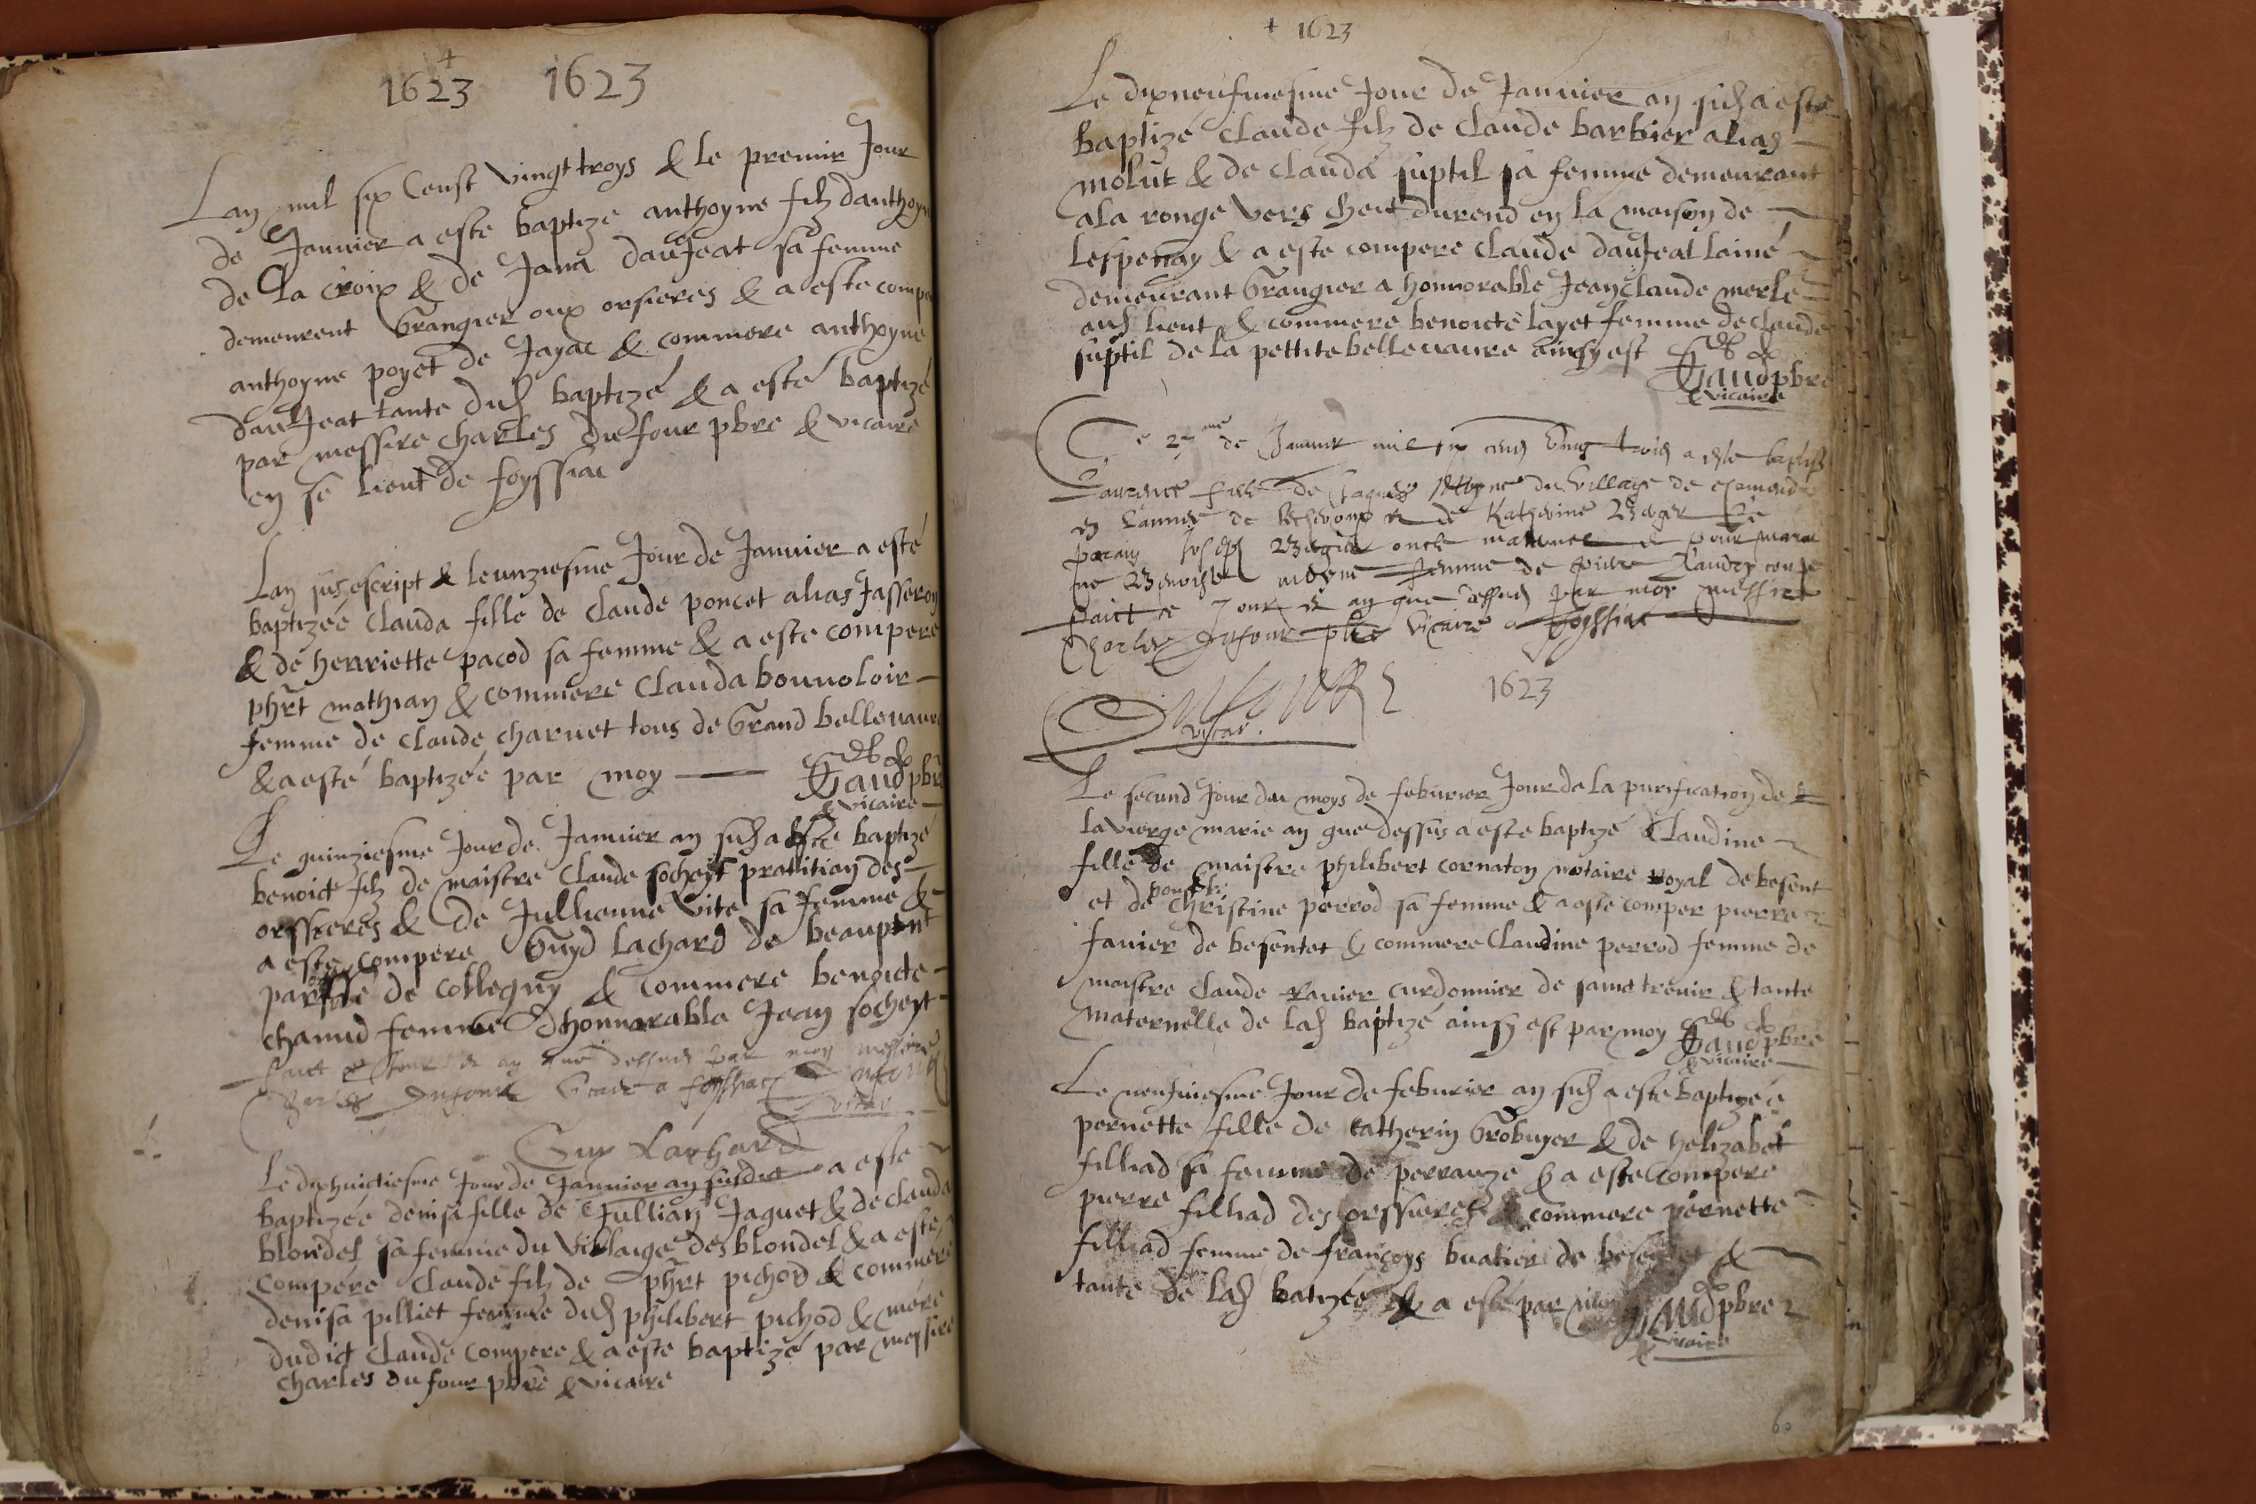 1623 1623
Lan mil six Censt vingt troys & le premir Jour
de Janvier a este baptize anthoyne filz danthoyne
de La croix & de Jana dauJeat sa femme
demeurent Grangier oux orsieres & a este compe
anthoyne poyet de Jayac & commere anthoyne
dauJeat tante dud baptizé & a esté baptizé
par messire charles du four pbre & vicaire
en se lieut de foyssiac
Lan susescript & leunziesme Jour de Janvier a esté
baptizéé Clauda fille de Claude poncet alias Jasseron
& de henriette pacod sa femme & a este compere
phrt mathian & commere Clauda bonvoloir
femme de Claude charvet tous de Grand bellevavre
& a esté baptizéé par moy
Gaud pbre
& vicaire
Le quinziesme Jour de Janvier an sud a este baptizé
benoict filz de maistre Claude socheyt pratitian des
orssieres & de Jullienne vite sa femme &
a este compere Guyd lachard de beaupont
parsse de collegny & commere benoicte
chanud femme dhonnorable Jean socheyt
faict ce Jour & an que dessus par moy messire
Charles Dufour vicaire a foissiac
vicar
Guy Lachard
Le dixhuictiesme Jour de Janvier an susdict a este
baptizéé denisa fille de Jullian Jaquet & de clauda
blondel sa femme du villaige des blondel & a este
compere Claude filz de phrt pichod & commere
denisa pilliet femme dud philibert pichod & mere
dudict Claude compere & a este baptizé par messire
charles du four pbre & vicaire
+ 1623
Le dixneufviesme Jour de Janvier an sud a este
baptizé Claude filz de Claude barbier alias
molut & de Clauda suptil sa femme demeurant
a la ronge vers cheit durend en la maison de
lespenay & a este compere Claude dauJeat lainé
demeurant Grangier a honnorable Jean Claude merle
aud lieut & commere benoicte layet femme de Claude
suptil de la pettite bellevavre ainsy est
Gaud pbre
& vicaire
Ce 27me de Janvier mil six cens vingt trois a este baptisé
Laurence fille de Jaques du village de
en de & de Katherine
parain Joseph oncle maternel & pour marai
ne femme de
Faict ce Jour & an que dessus par moy messire
Charles Dufour pbre vicaire a foyssiac
1623
vicar.
Le second Jour du moys de feburier Jour de la purification de
la vierge marie an que dessus a este baptizé Claudine
fille de maistre philibert cornaton notaire royal de besent
et de christine perrod sa femme & a este comper pierre
favier de besentet & commere Claudine perrod femme de
maistre Claude ravier curdonnier de sainct trevir & tante
maternelle de lad baptizé ainsy est par moy
Gaud pbre
& vicaire
Le neufviesme Jour de feburier an sud a este baptizéé
pernette fille de catherin Grobuyer & de helizabet
filliad sa femme de perrauze & a este compere
pierre filliad des orssieres & commere pernette
filliad femme de françoys buatier de besentet &
tante de lad batizéé & a esté par moy
Gaud pbre
& vicaire
60